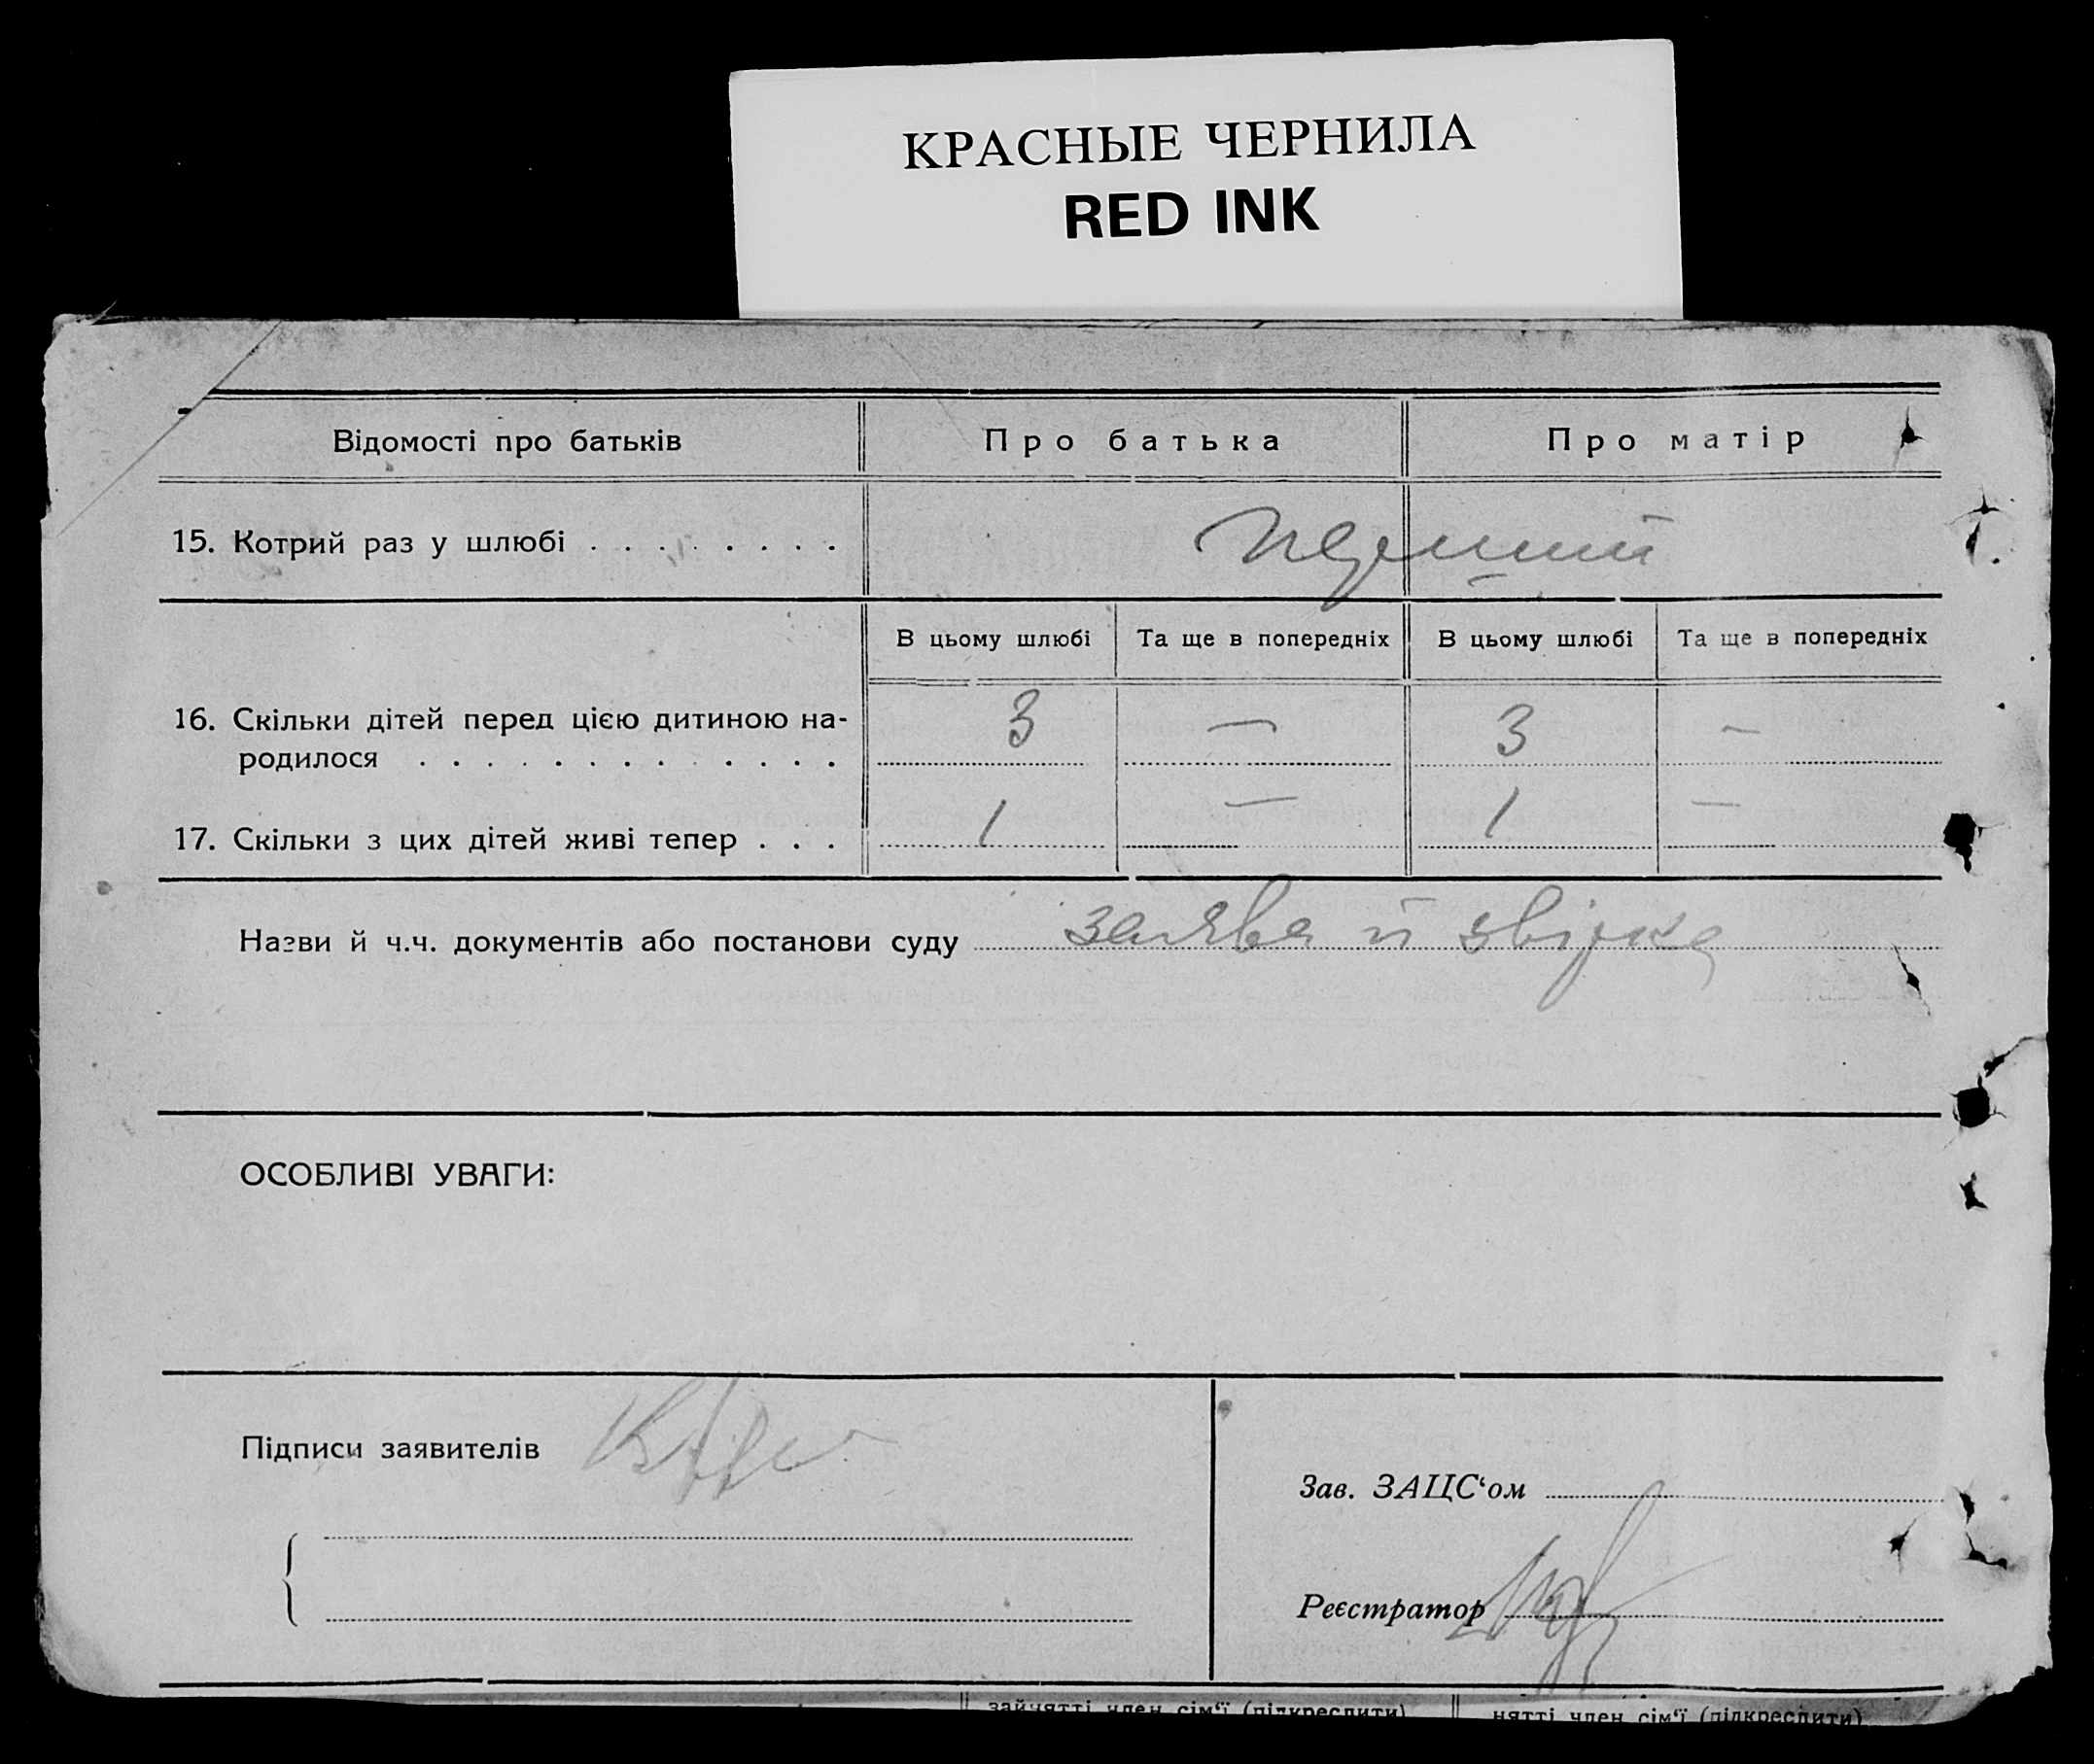 КРАСНЫЕ ЧЕРНИЛА
RED INK
Відомості про батьків Про батька Про матір
15. Котрий раз у шлюбі . . . . . . . . перший
В цьому шлюбі Та ще в попередніх В цьому шлюбі Та ще в попередніх
16. Скільки дітей перед цією дитиною на-
родилося . . . . . . . . . . . . . 3 — 3 —
17. Скільки з цих дітей живі тепер . . . 1 — 1 —
Назви й ч.ч. документів або постанови суду заява й звірка
ОСОБЛИВІ УВАГИ:
Підписи заявителів
Зав. ЗАЦС‘ом
Реєстратор
зайнятті член сім‘ї (підкреслити) нятті член сім‘ї (підкреслити)